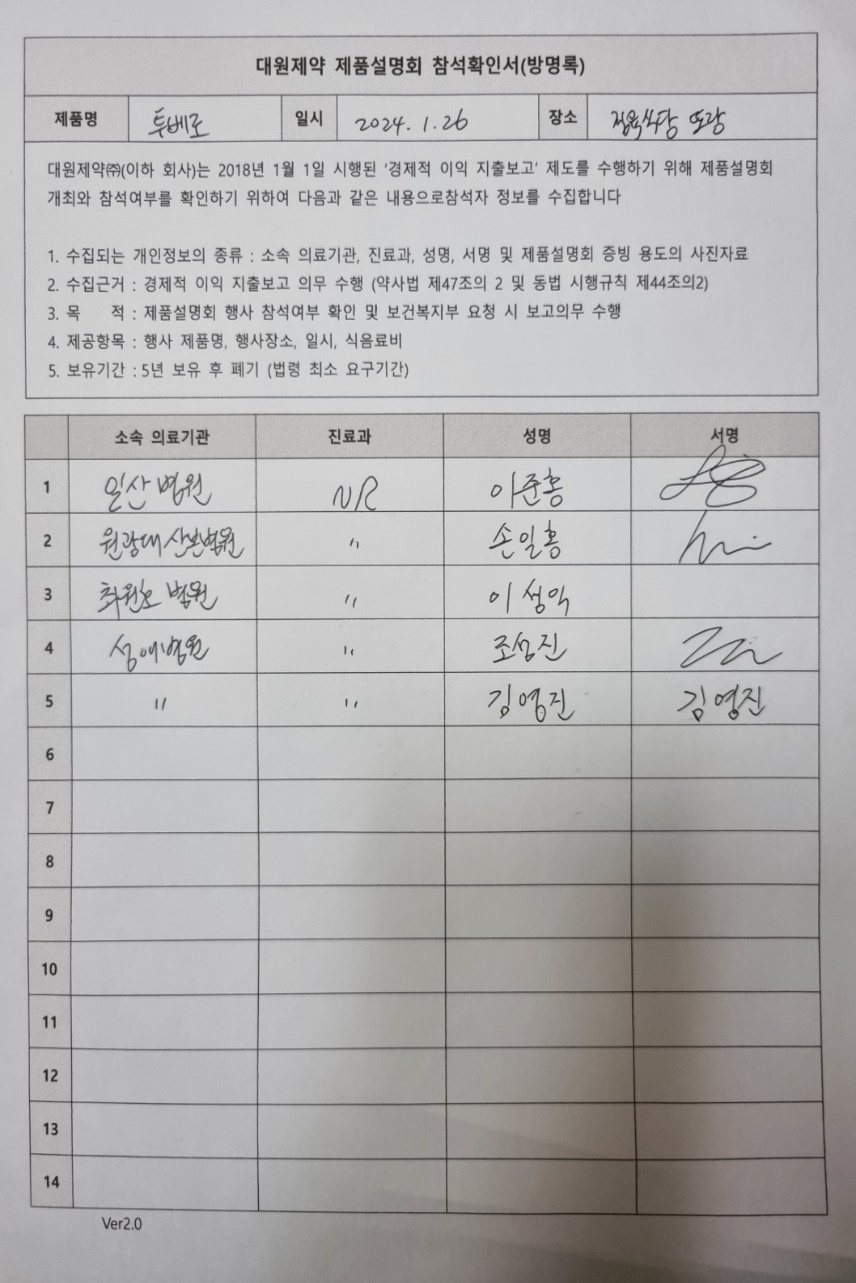 대원제약 제품설명회 참석확인서(방명록)
제품명 투베로 일시 2024. 1. 26 장소 정육식당
대원제약㈜(이하 회사)는 2018년 1월 1일 시행된 '경제적 이익 지출보고' 제도를 수행하기 위해 제품설명회
개최와 참석여부를 확인하기 위하여 다음과 같은 내용으로참석자 정보를 수집합니다
1. 수집되는 개인정보의 종류 : 소속 의료기관, 진료과, 성명, 서명 및 제품설명회 증빙 용도의 사진자료
2. 수집근거 : 경제적 이익 지출보고 의무 수행 (약사법 제47조의 2 및 동법 시행규칙 제44조의2)
3. 목 적 : 제품설명회 행사 참석여부 확인 및 보건복지부 요청 시 보고의무 수행
4. 제공항목 : 행사 제품명, 행사장소, 일시, 식음료비
5. 보유기간 : 5년 보유 후 폐기 (법령 최소 요구기간)
소속 의료기관 진료과 성명 서명
1 일산병원 NR 이준홍
2 원광대산본병원 〃 손일홍
3 최원호 병원 〃 이성익
4 성애병원 〃 조성진
5 〃 〃 김영진 김영진
6
7
8
9
10
11
12
13
14
Ver2.0